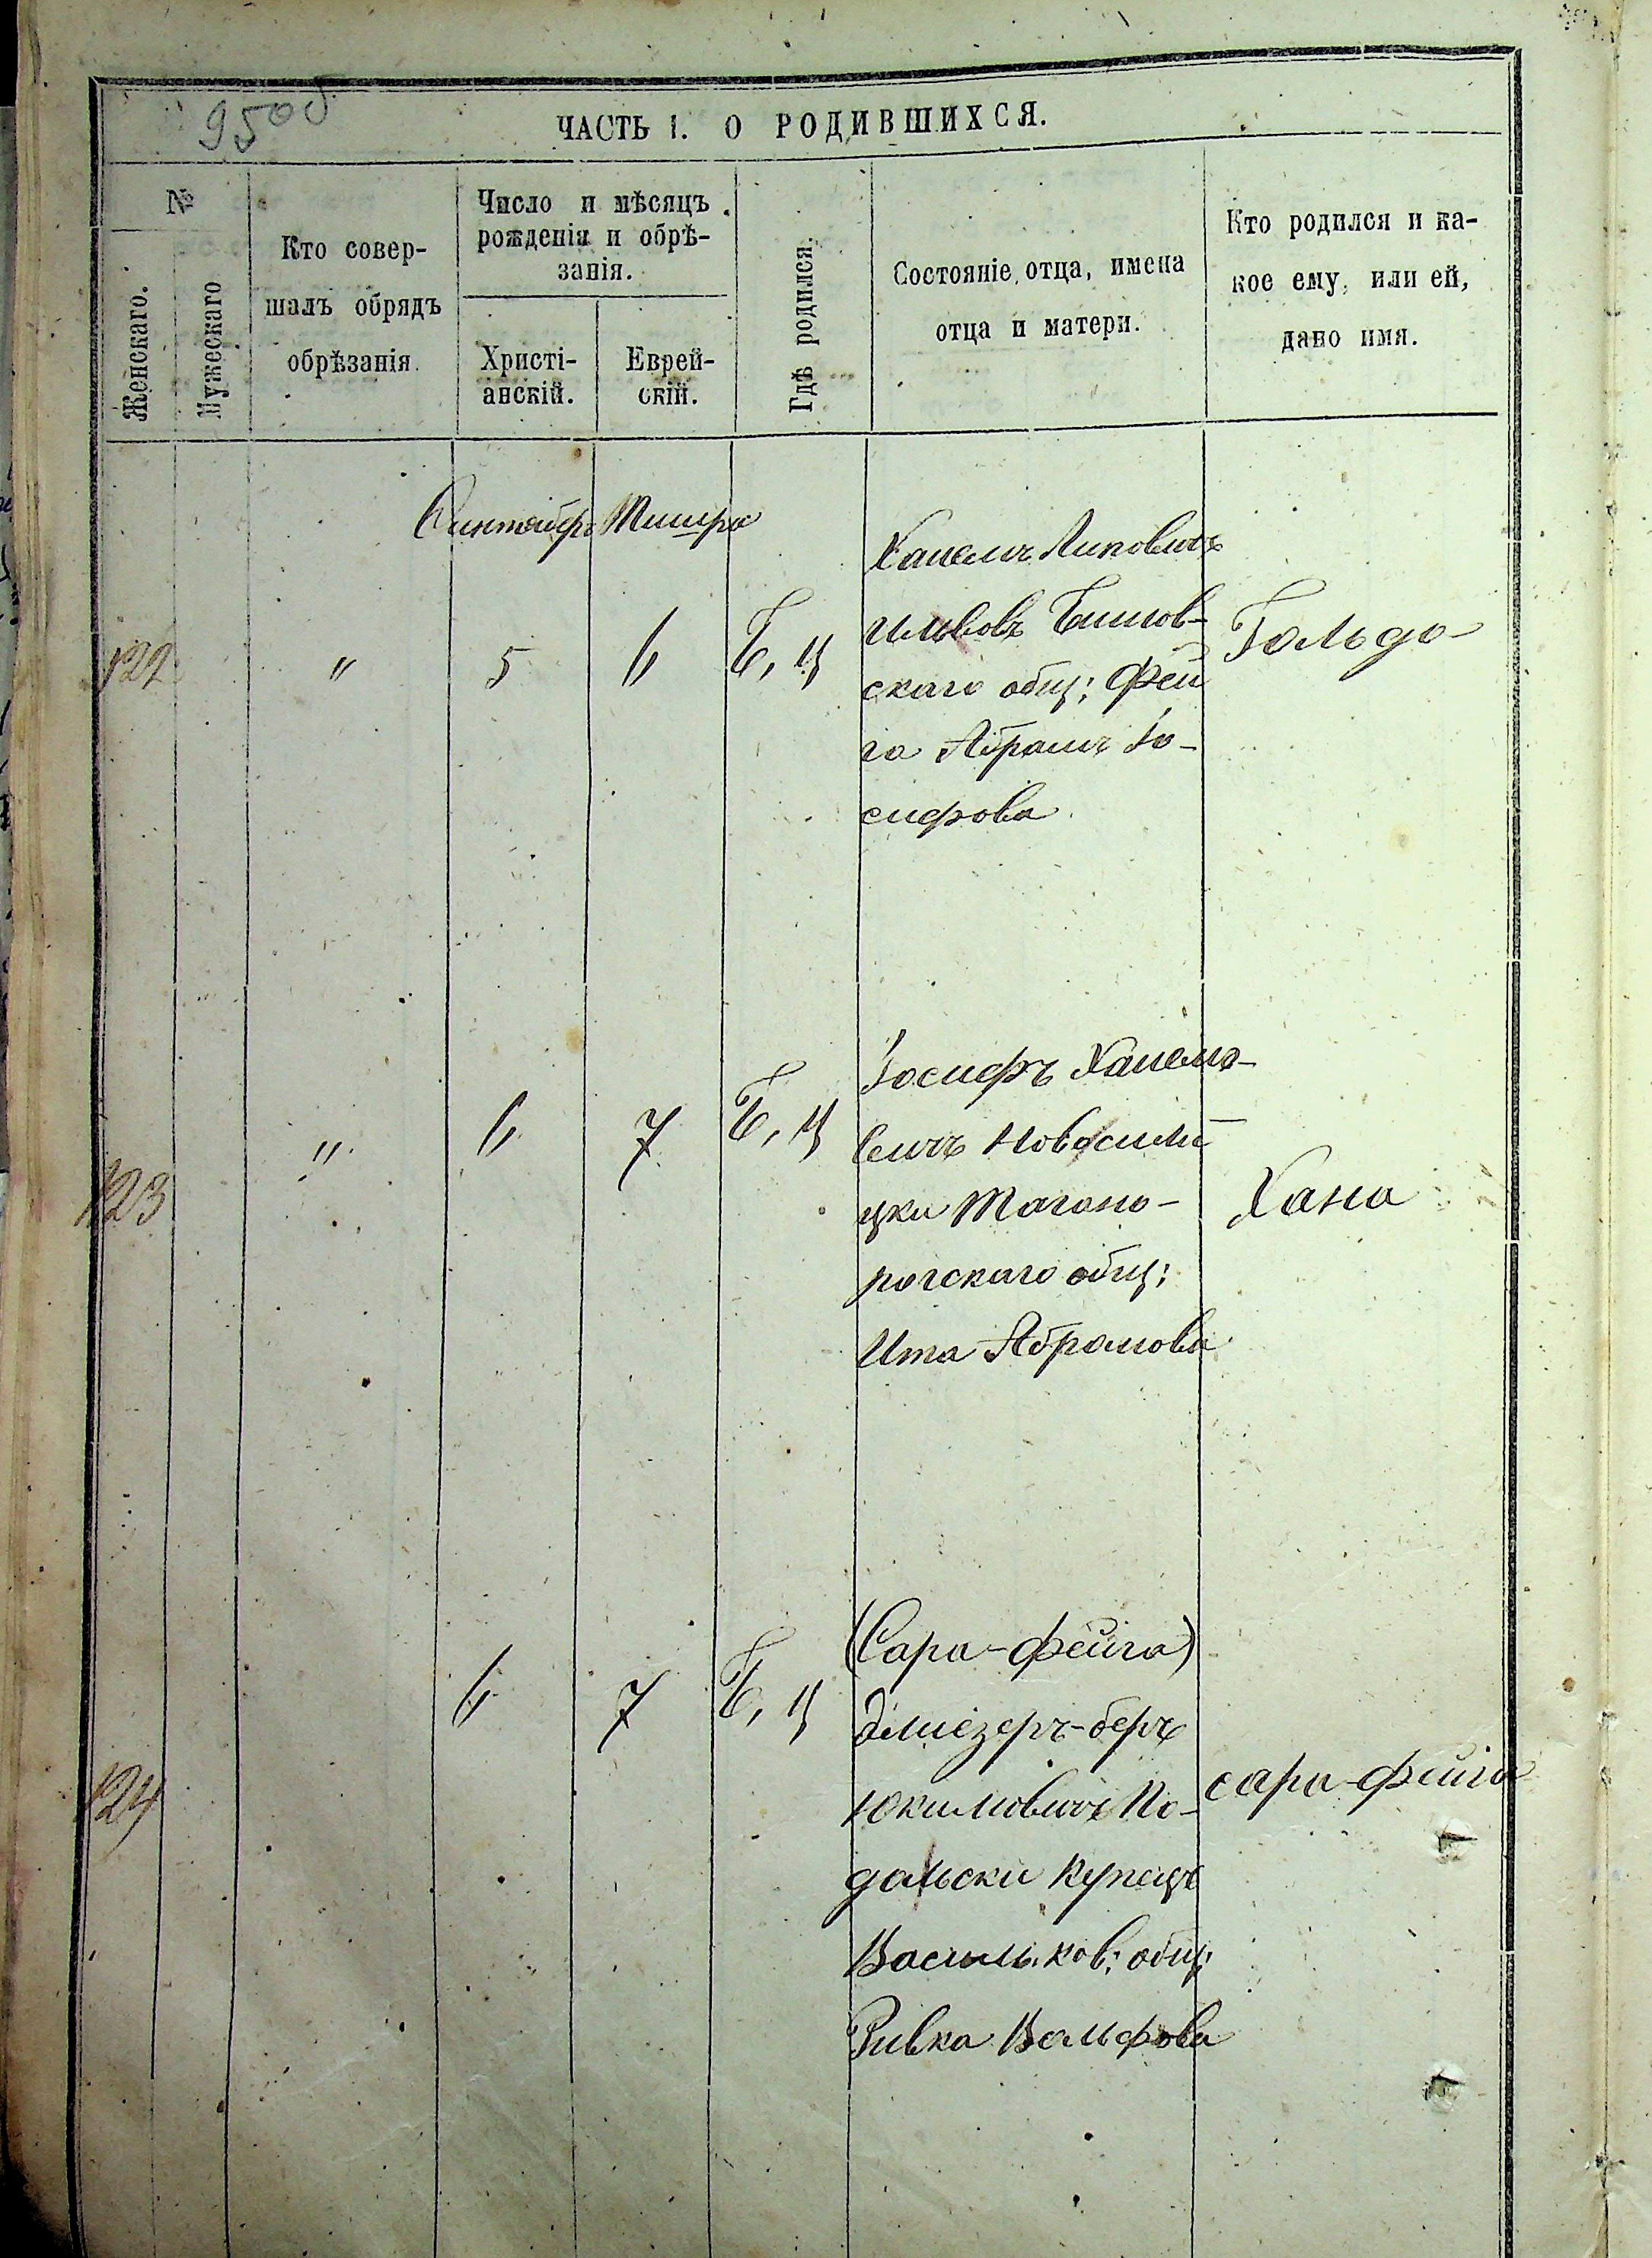 950об
ЧАСТЬ I. О РОДИВШИХСЯ.
№
Женскаго.
Мужескаго
Кто совер-
шалъ обрядъ
обрѣзанія.
Число и мѣсяцъ
рожденія и обрѣ-
занія.
Христі-
анскій.
Еврей-
скій.
Гдѣ родился.
Состояніе отца, имена
отца и матери.
Кто родился и ка-
кое ему, или ей,
дано имя.
Синтябрь Тишри
122 " 5 6 Б, Ц
скаго общ; Фей
га Абрамъ Іо-
сифова
Гольда
123 " 6 7 Б, Ц
Іосифъ
цки Тагано-
рогскаго общ;
Ита Абрамова
Хана
124 6 7 Б, Ц
(Сара-Фейга)
Эліезеръ-беръ
Юкимовичъ По-
дольски Купецъ
Васильков; общ;
Ривка Вольфова
сара-Фейга